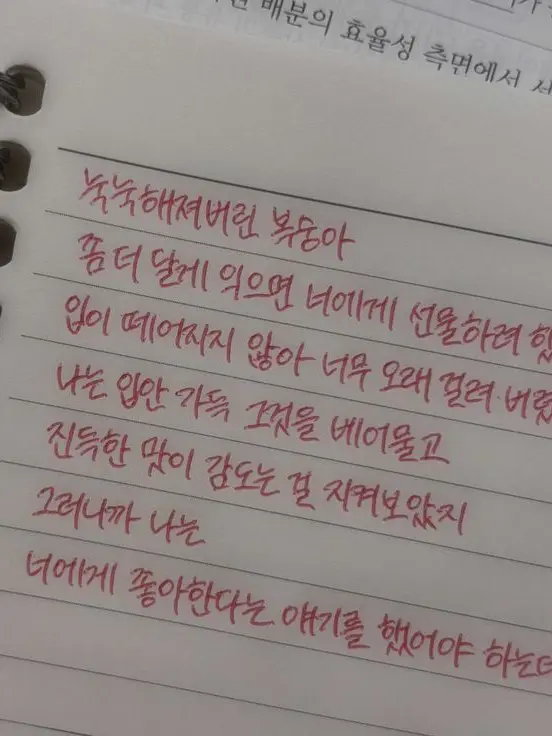 배분의 효율성 측면에서
눅눅해져버린 복숭아
좀 더 달게 익으면 너에게 선물하려 했
입이 떼어지지 않아 너무 오래 걸려 버렸
나는 입안 가득 그것을 베어물고
진득한 맛이 감도는 걸 지켜보았지
그러니까 나는
너에게 좋아한다는 얘기를 했어야 하는데